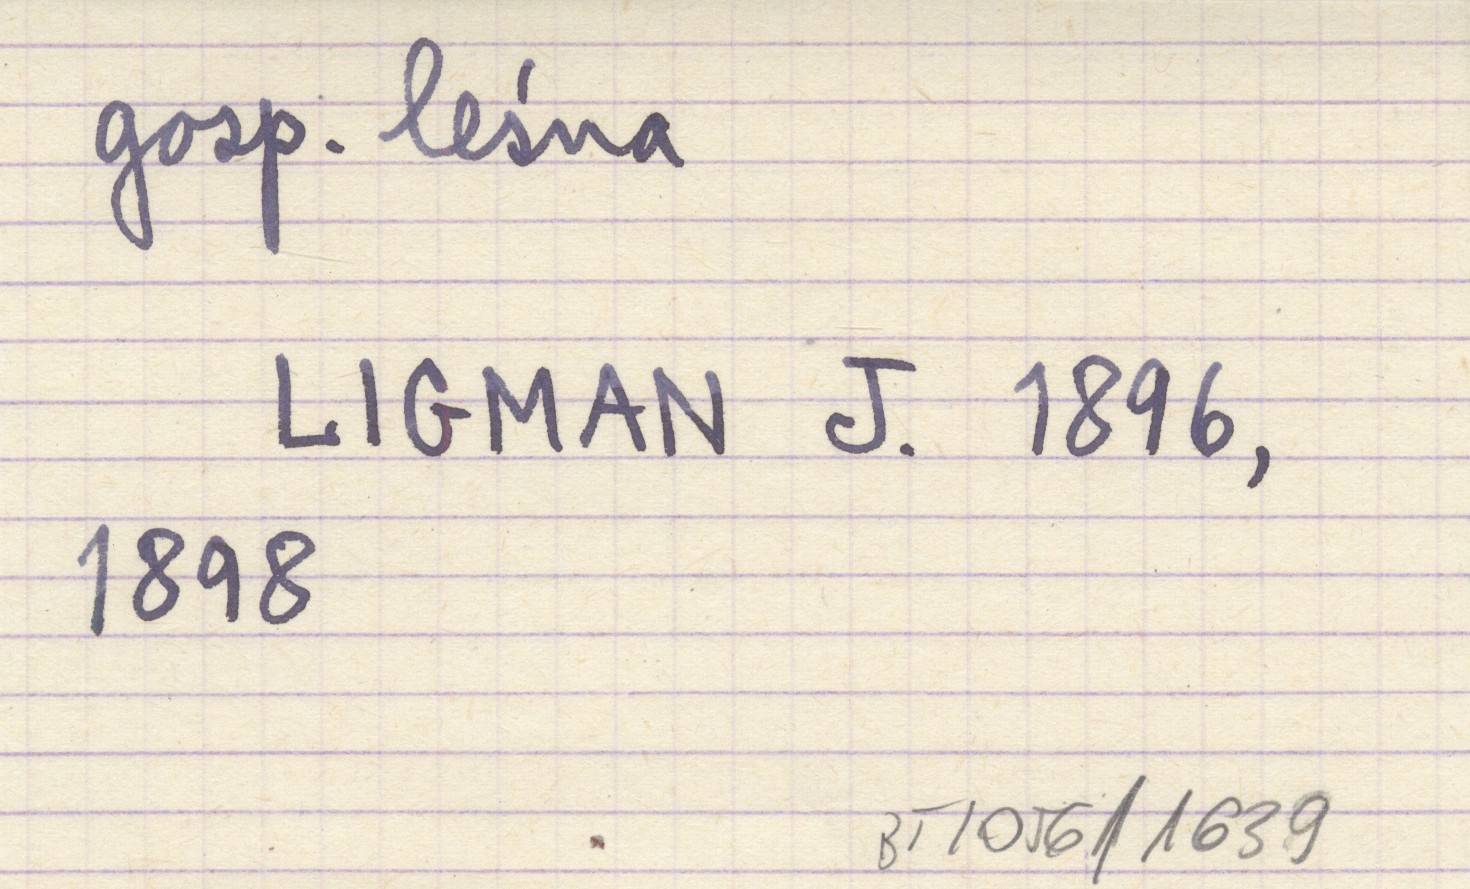 gosp. leśna
LIGMAN J. 1896,
1898
BT 1056/1639